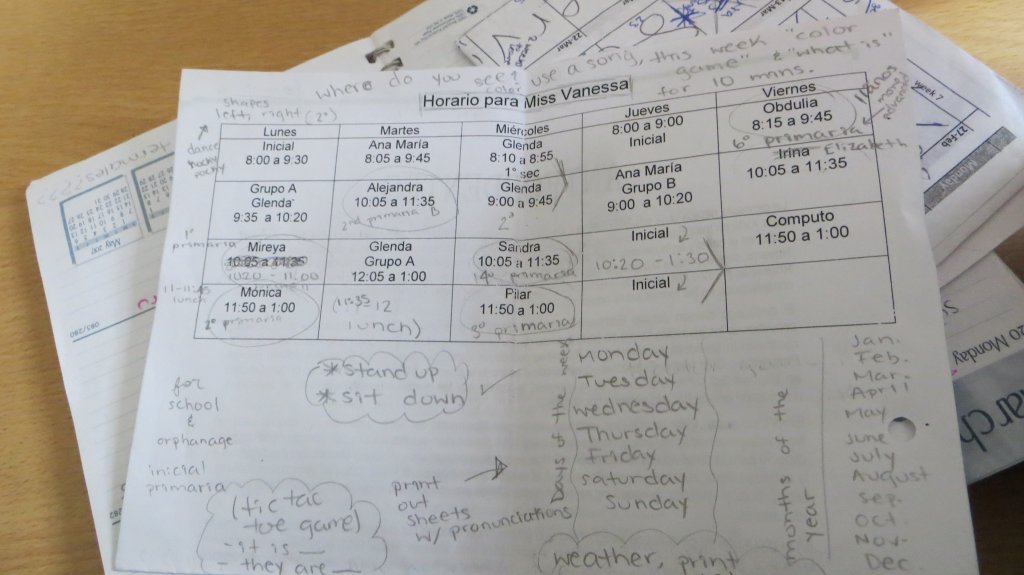 where do you see? use a song, this week "color
color
game" & "what is"
for 10 mins.
Horario para Miss Vanessa
shapes
left, right (2°)
dance
hocky
pocky
Lunes
Martes
Miércoles
Jueves
Viernes
Inicial
8:00 a 9:30
Ana María
8:05 a 9:45
Glenda
8:10 a 8:55
1° sec
8:00 a 9:00
Inicial
Obdulia
8:15 a 9:45
6° primaria
Elizabeth
more
advanced
Grupo A
Glenda
9:35 a 10:20
Alejandra
10:05 a 11:35
2nd primaria B
Glenda
9:00 a 9:45
2°
Ana María
Grupo B
9:00 a 10:20
Irina
10:05 a 11:35
1°
primaria
Mireya
10:05 a 11:35
1020 - 11:00
Glenda
Grupo A
12:05 a 1:00
Sandra
10:05 a 11:35
4° primaria
Inicial
10:20 - 1:30
Computo
11:50 a 1:00
11-11:45
lunch
Mónica
11:50 a 1:00
2° primaria
(11:35 12
lunch)
Pilar
11:50 a 1:00
3° primaria
Inicial
*stand up
*sit down
for
school
&
orphanage
inicial
primaria
(tic tac
toe game)
-it is __
- they are __
print
out
sheets
w/ pronunciations
Days of the week
Monday
Tuesday
wednesday
Thursday
Friday
saturday
Sunday
months of the
year
Jan.
Feb.
Mar.
April
May
June
July
August
Sep.
Oct.
Nov.
Dec.
weather, print
22-Mar
23
week 7
22-Feb
Monday
20 Monday
arch
083/280